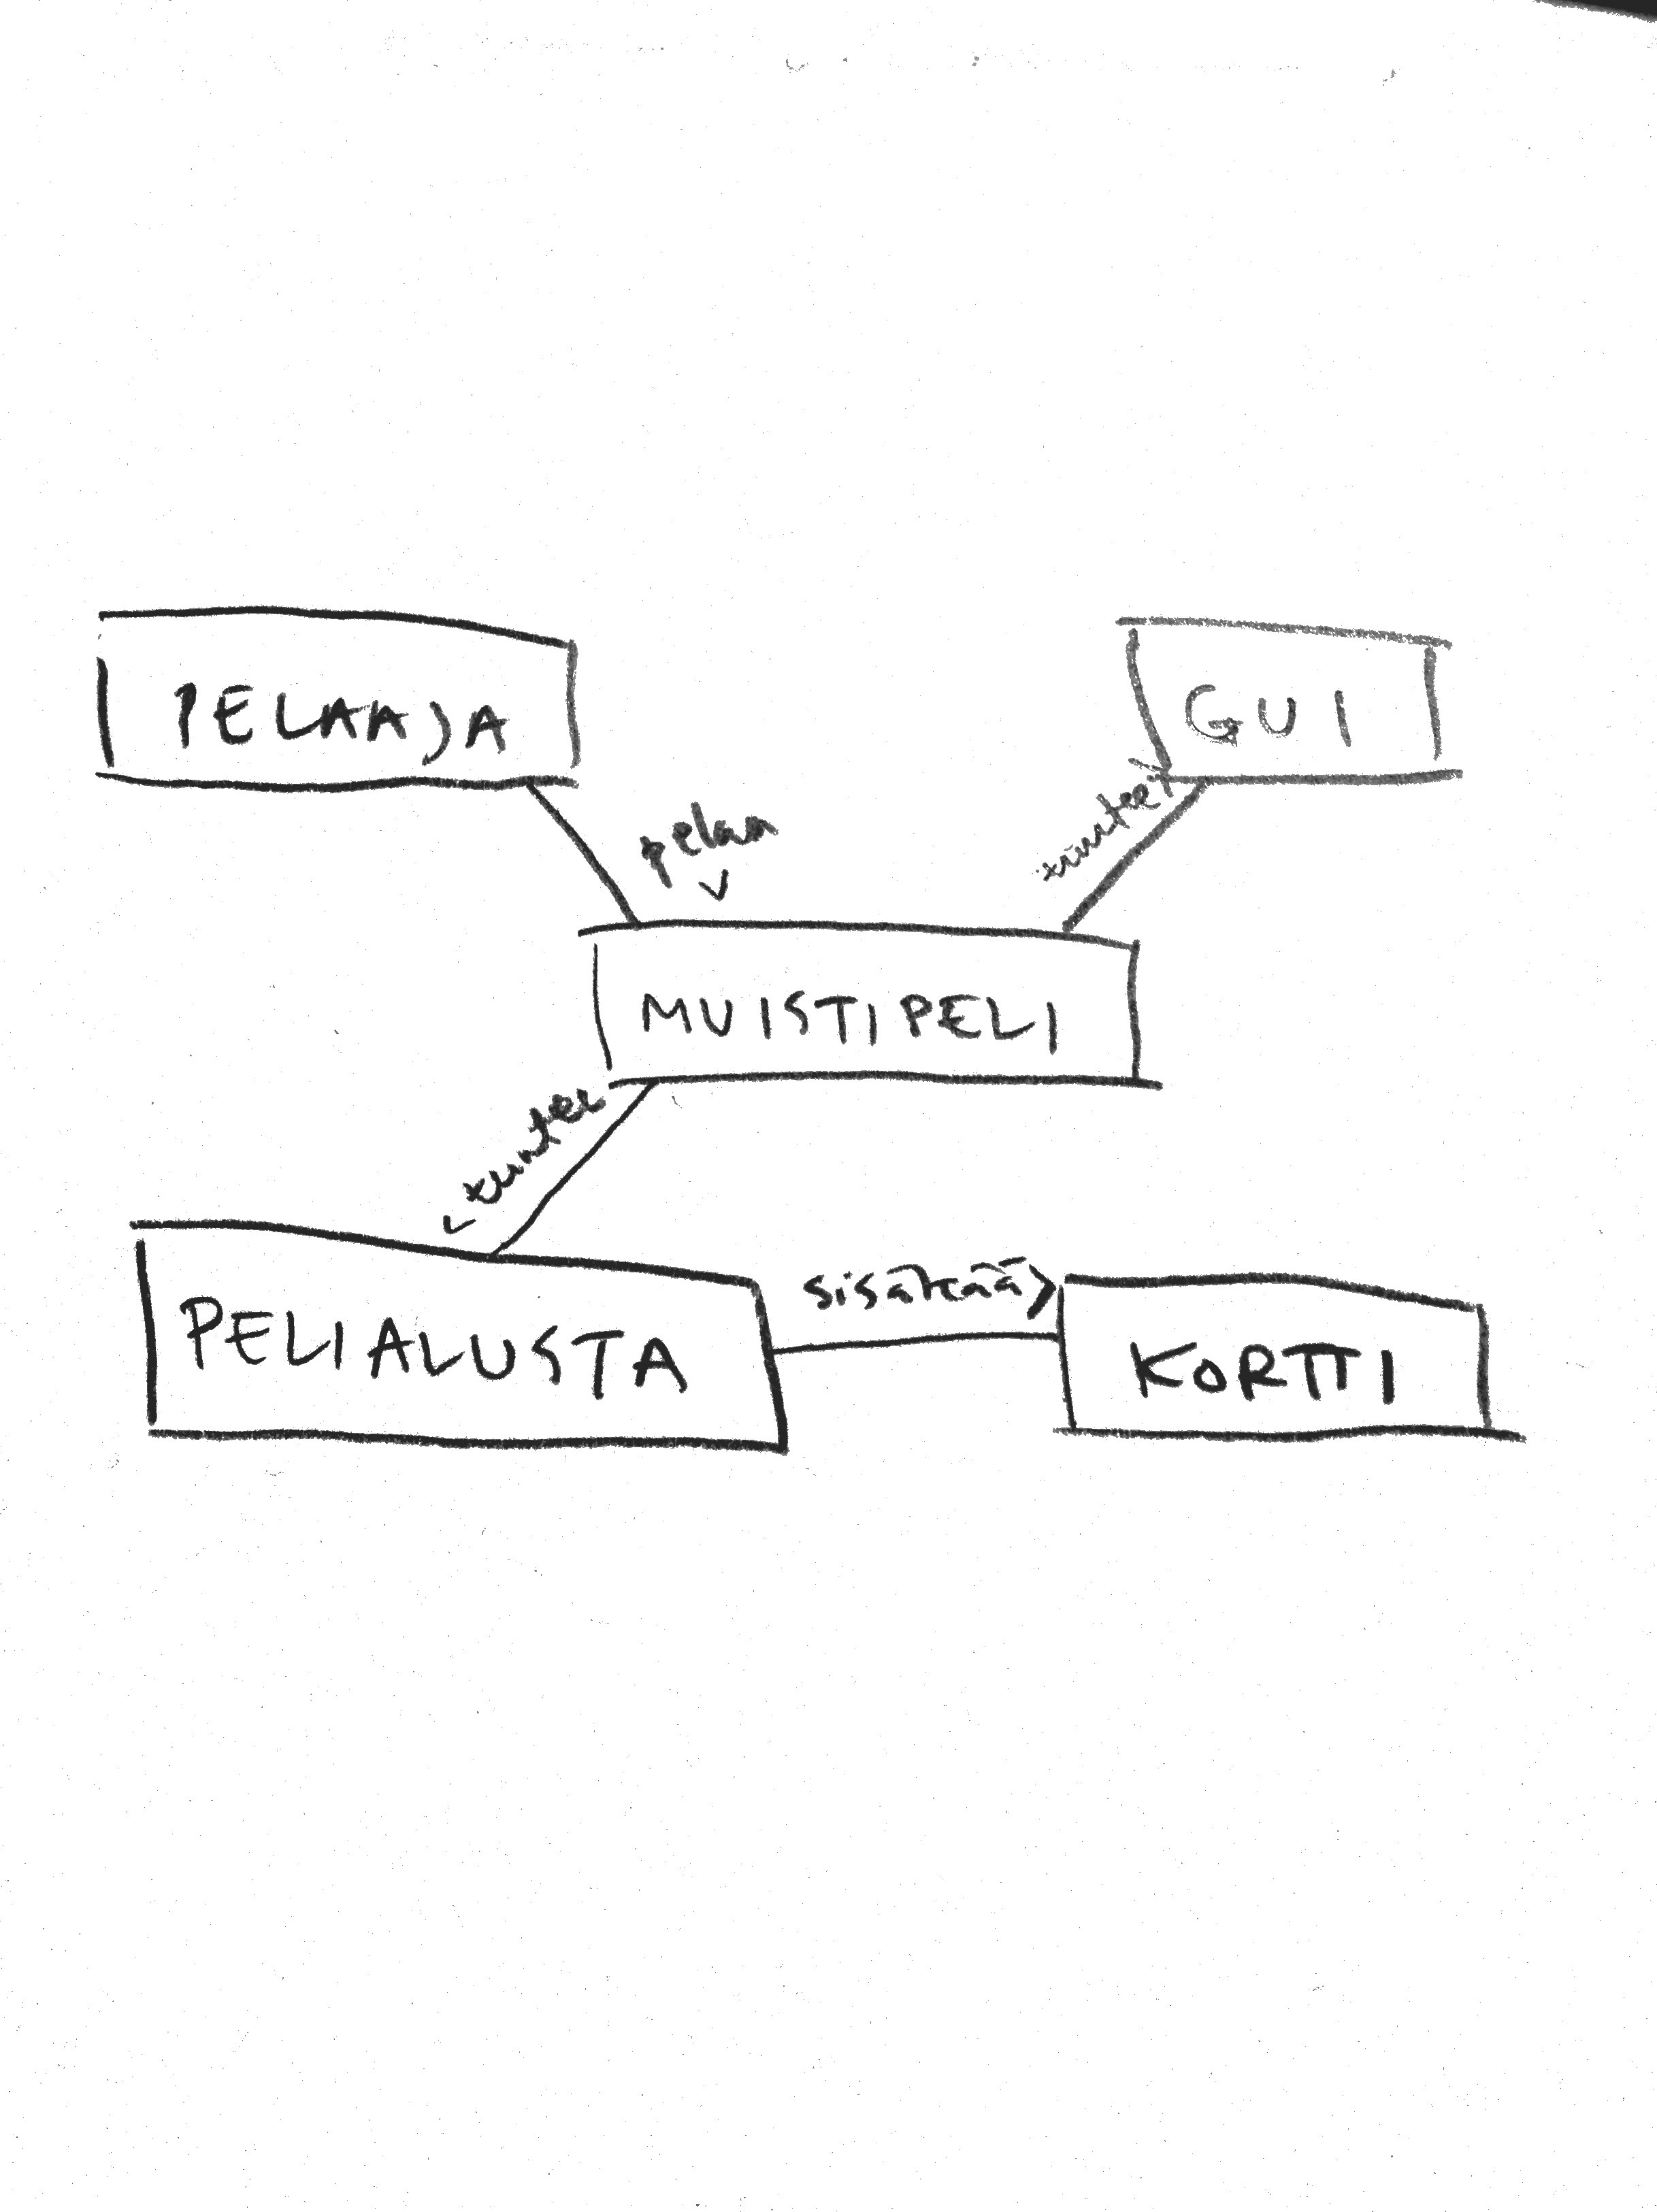 PELAAJA
GUI
pelaa
tuntee
MUISTIPELI
tuntee
PELIALUSTA
sisältää
KORTTI